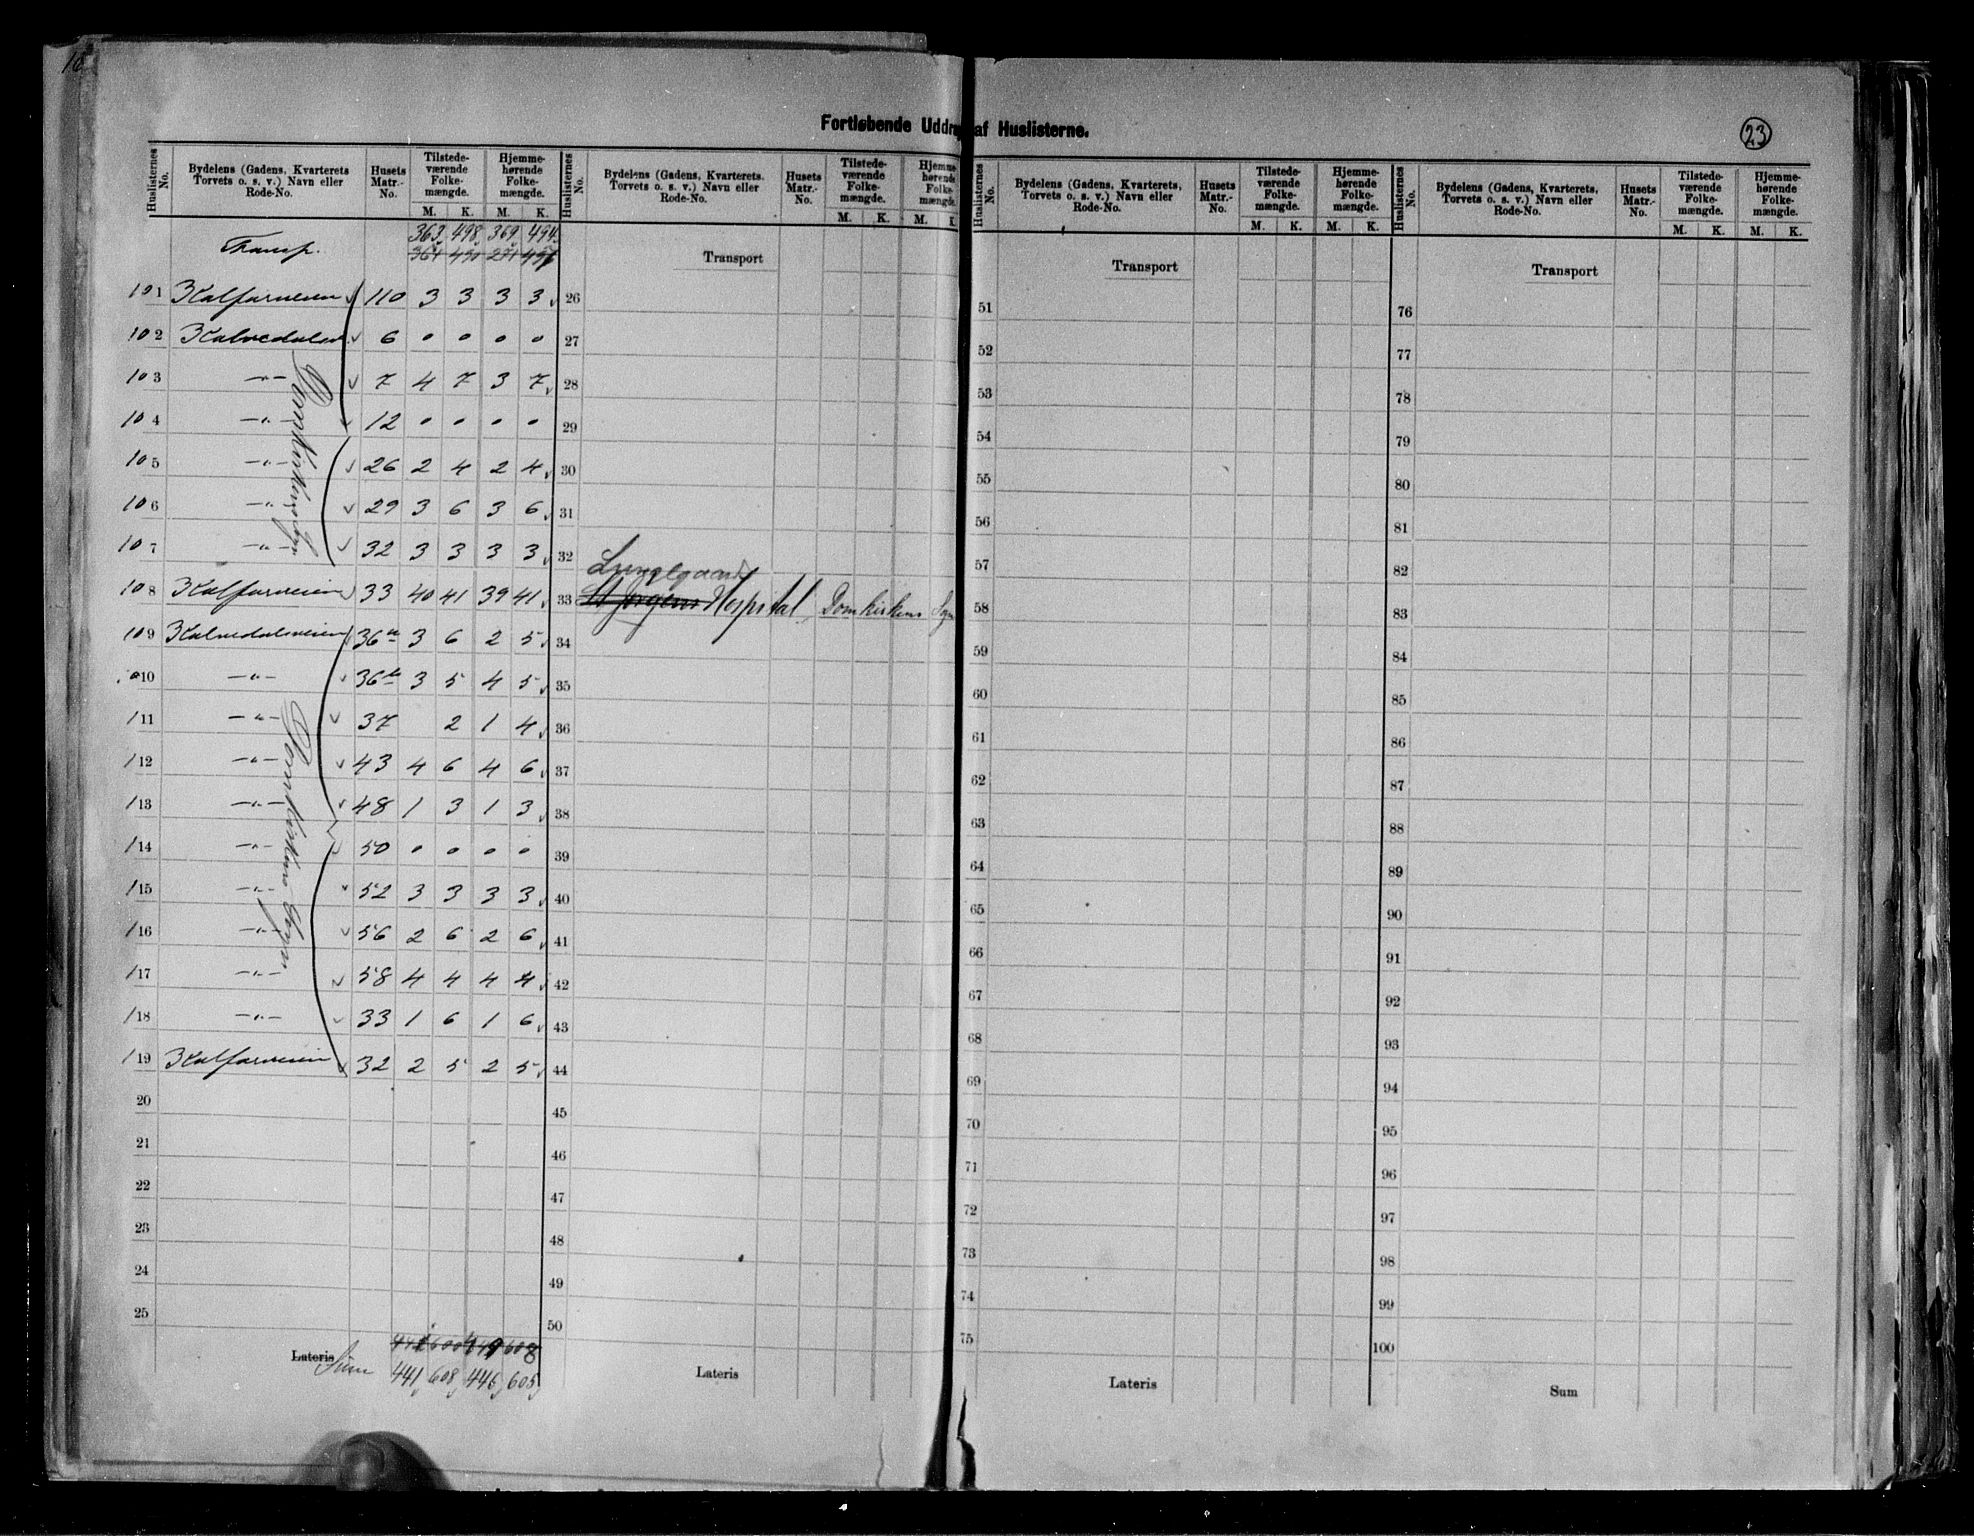 Fortløbende Uddrag af Huslisterne.
23
Huslisternes No. Bydelens (Gadens, Kvarterets Torvets o. s. v.) Navn eller Rode-No. Husets Matr.-No. Tilstede-værende Folke-mængde. M. K. Hjemme-hørende Folke-mængde. M. K.
Transp. 363 498 369 494
101 Kalfarveien 110 3 3 3 3
102 Kalvedalsv. 6 0 0 0 0
103 -"- 7 4 7 3 7
104 -"- 12 0 0 0 0
105 -"- 26 2 4 2 4
106 -"- 29 3 6 3 6
107 -"- 32 3 3 3 3
108 Kalfarveien 33 40 41 39 41
109 Kalvedalsveien 36a 3 6 2 5
110 -"- 36b 3 5 4 5
111 -"- 37 2 1 4
112 -"- 43 4 6 4 6
113 -"- 48 1 3 1 3
114 -"- 50 0 0 0 0
115 -"- 52 3 3 3 3
116 -"- 56 2 6 2 6
117 -"- 58 4 4 4 4
118 -"- 33 1 6 1 6
119 Kalfarveien 32 2 5 2 5
20
21
22
23
24
25
Domkirkens Sogn
Domkirkens Sogn
Lateris Sum 441 608 446 605
Huslisternes No. Bydelens (Gadens, Kvarterets. Torvets o. s. v.) Navn eller Rode-No. Husets Matr.-No. Tilstede-værende Folke-mængde. M. K. Hjemme-hørende Folke-mængde. M. K.
Transport
26
27
28
29
30
31
32 Lungegaards
33 St Jørgens Hospital, Domkirkens Sogn
34
35
36
37
38
39
40
41
42
43
44
45
46
47
48
49
50
Lateris
Huslisternes No. Bydelens (Gadens, Kvarterets, Torvets o. s. v.) Navn eller Rode-No. Husets Matr.-No. Tilstede-værende Folke-mængde. M. K. Hjemme-hørende Folke-mængde. M. K.
Transport
51
52
53
54
55
56
57
58
59
60
61
62
63
64
65
66
67
68
69
70
71
72
73
74
75
Lateris
Huslisternes No. Bydelens (Gadens, Kvarterets, Torvets o. s. v.) Navn eller Rode-No. Husets Matr.-No. Tilstede-værende Folke-mængde. M. K. Hjemme-hørende Folke-mængde. M. K.
Transport
76
77
78
79
80
81
82
83
84
85
86
87
88
89
90
91
92
93
94
95
96
97
98
99
100
Sum